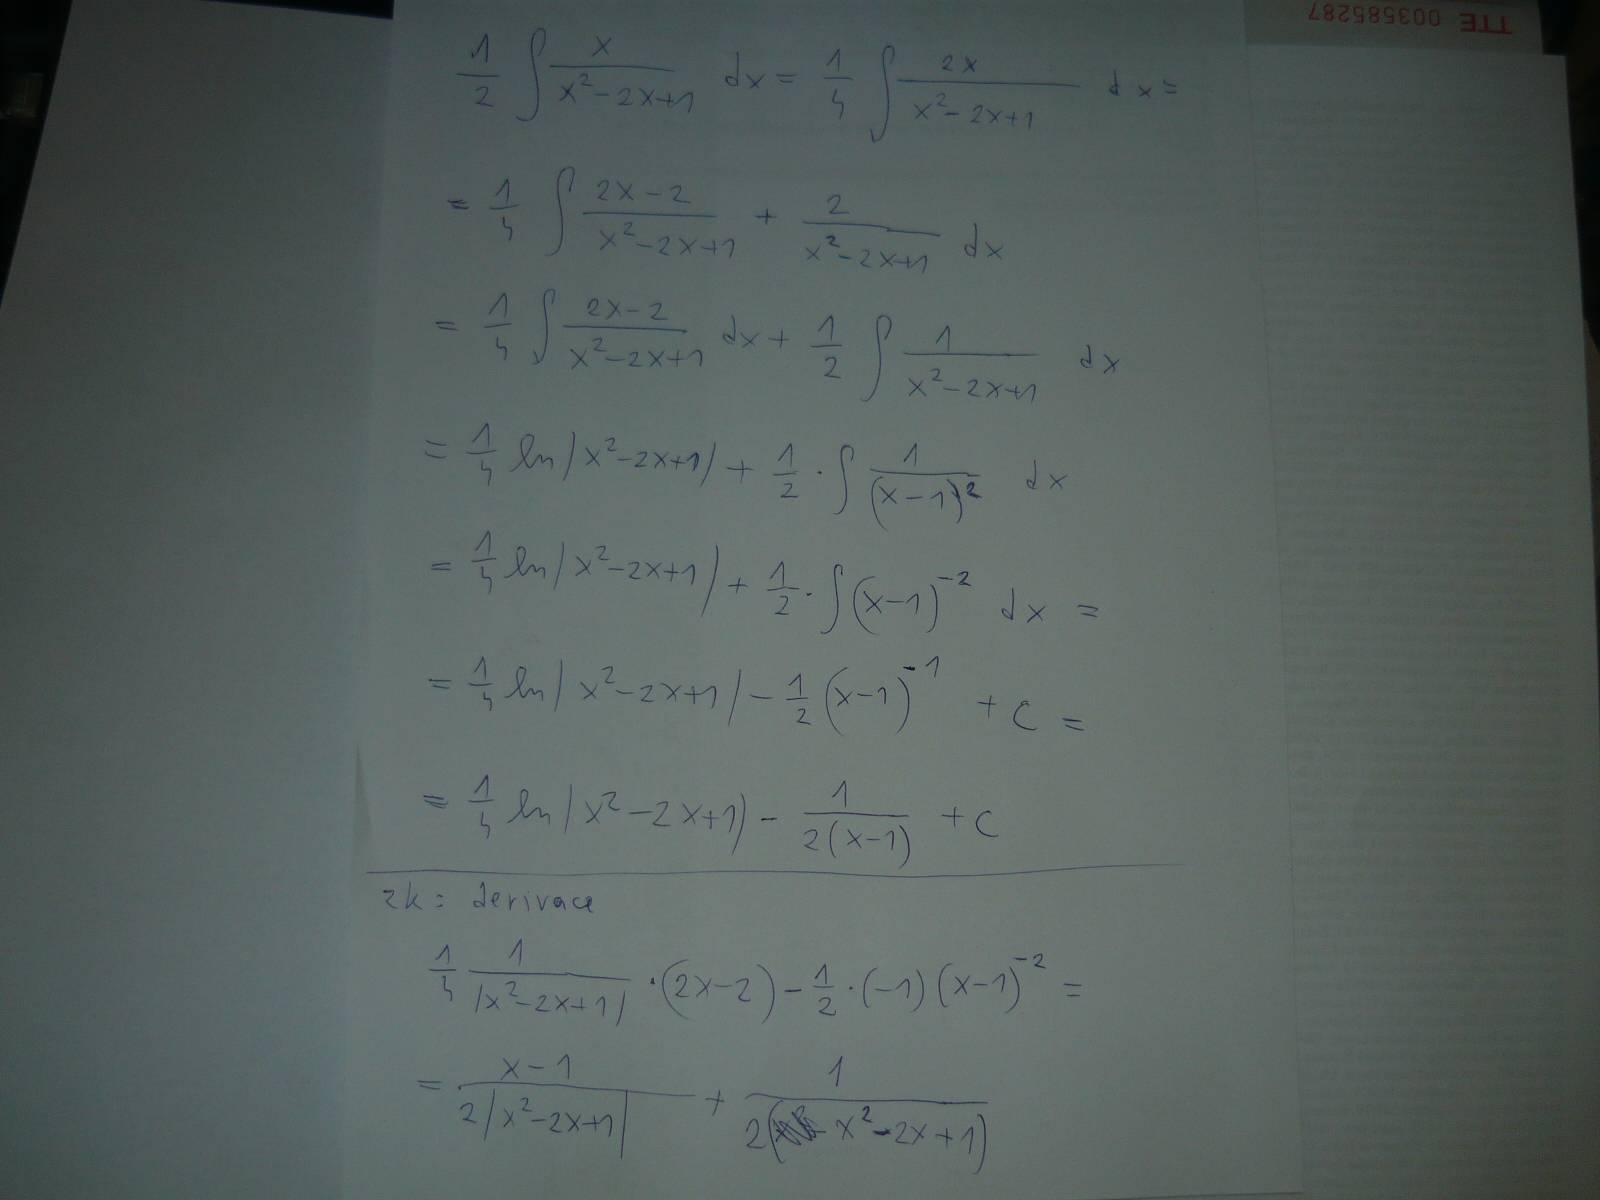 TTE 003585287
1/2 ∫ x/(x²-2x+1) dx = 1/4 ∫ 2x/(x²-2x+1) dx =
= 1/4 ∫ (2x-2)/(x²-2x+1) + 2/(x²-2x+1) dx
= 1/4 ∫ (2x-2)/(x²-2x+1) dx + 1/2 ∫ 1/(x²-2x+1) dx
= 1/4 ln|x²-2x+1| + 1/2 · ∫ 1/(x-1)² dx
= 1/4 ln|x²-2x+1| + 1/2 · ∫ (x-1)⁻² dx =
= 1/4 ln|x²-2x+1| - 1/2 (x-1)⁻¹ + C =
= 1/4 ln|x²-2x+1| - 1/(2(x-1)) + C
zk: derivace
1/4 1/|x²-2x+1| · (2x-2) - 1/2 · (-1) (x-1)⁻² =
= (x-1)/(2|x²-2x+1|) + 1/(2(x²-2x+1))